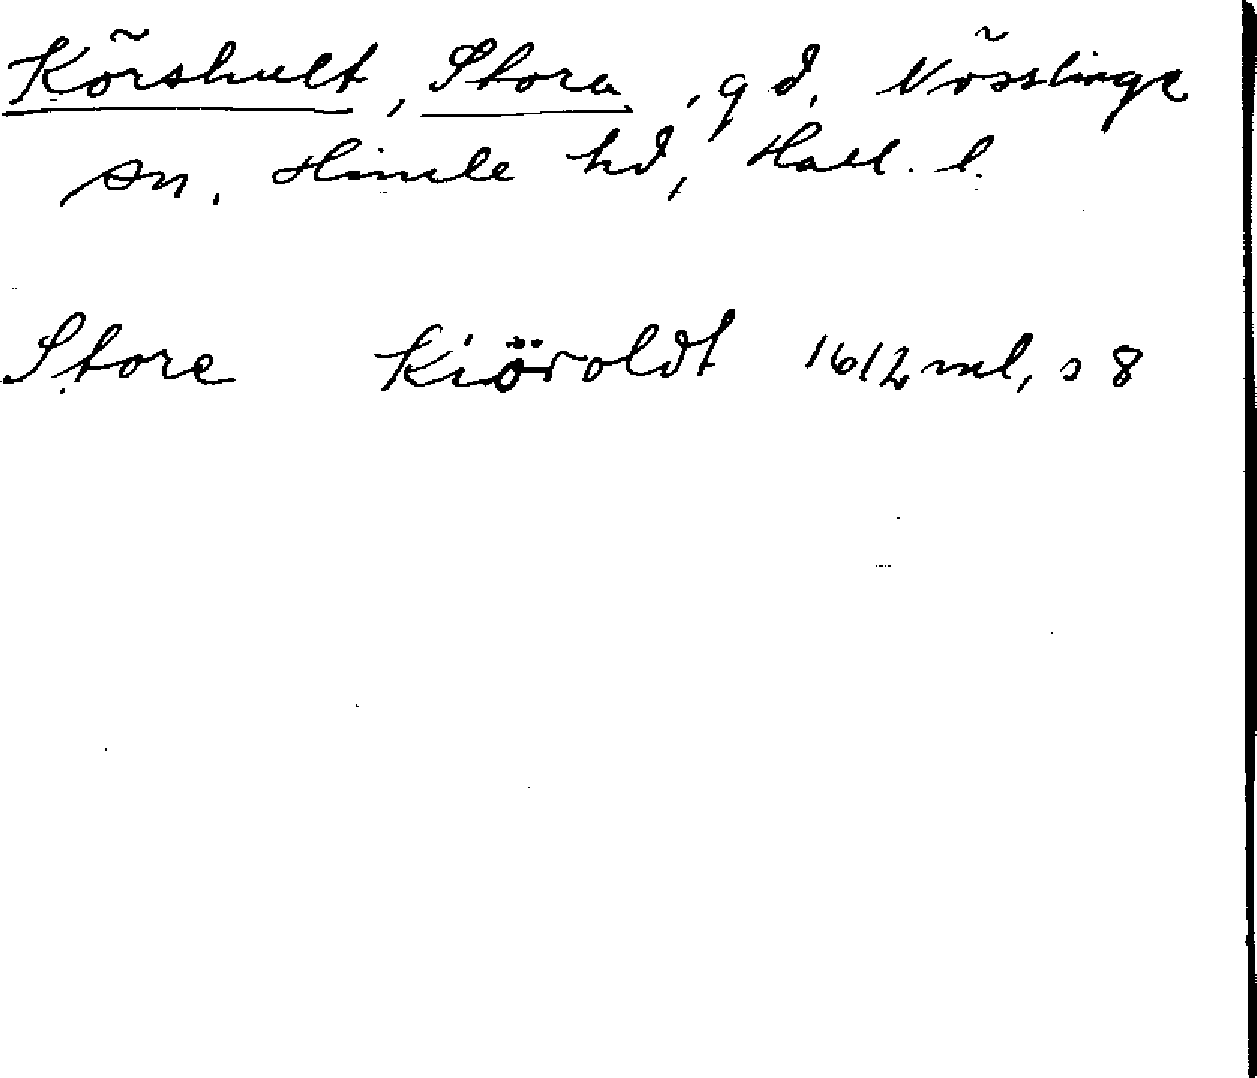 Körshult, Stora, gd, Nösslinge
sn. Himle hd, Hall. l.
Store Kiöroldt 1612 ml, s 8